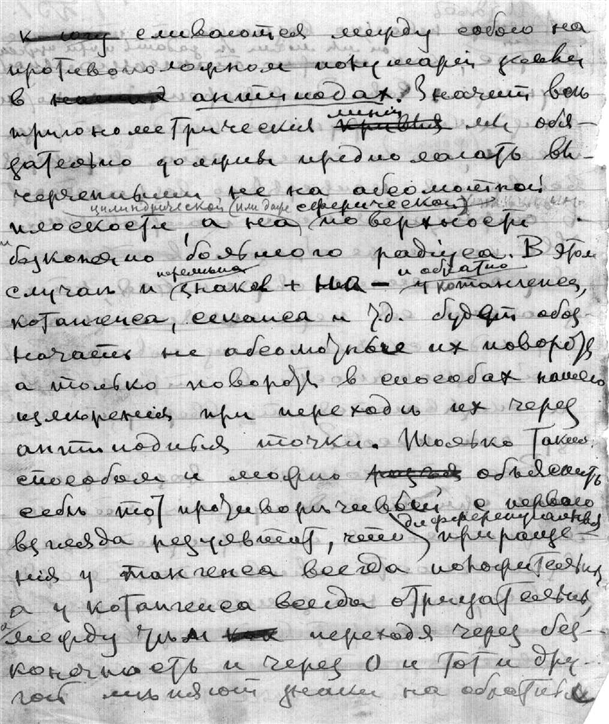 сливаются между собою на
противоположном полушарiи
в антиподах. Значит все
тригонометрическiя линiи мы обя-
зательно должны предполагать вы-
черченными не на абсолютной
цилиндрической (или даже сферической)
плоскости, а на поверхности
безконечно большого радiуса. В этом
случаѣ и перемѣна знаков + на − и обратно у тангенса,
котангенса, секанса и т.д. будет обоз-
начать не абсолютные их повороты
а только повороты в способах нашего
измѣренiя при переходѣ их через
антиподныя точки. Только таким
способом и можно объяснить
себѣ тот противорѣчивый с первого
взгляда результат, что дифференцiальныя прираще-
нiя у тангенса всегда положительны,
а у котангенса всегда отрицательны,
а между тѣм переходя через без-
конечность и через 0 и тот и дру-
гой мѣняют знаки на обратные